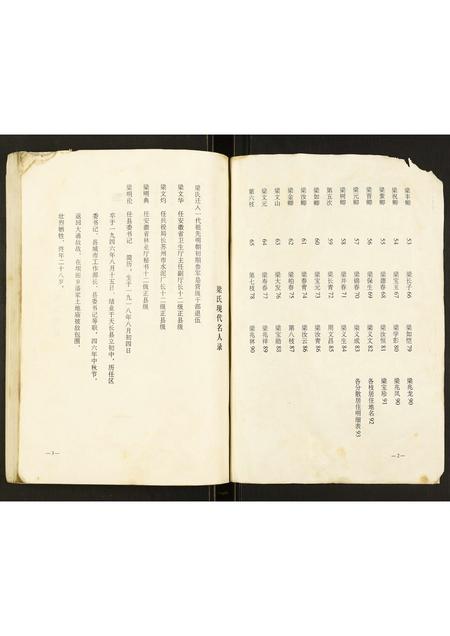 梁丰卿 53
梁祝卿 54
梁紫卿 55
梁晋卿 56
梁元卿 57
梁树卿 58
第五次 59
梁如卿 60
梁汝卿 61
梁金卿 62
梁文山 63
梁文元 64
第六枝 65
梁长子 66
梁宝玉 67
梁德春 68
梁保生 69
梁锦春 70
梁井春 71
梁长青 72
梁宝元 73
梁春青 74
梁柏春 75
梁大发 76
梁寿春 77
第七枝 78
梁如恺 79
梁学彭 80
梁汝恒 81
梁义文 82
梁义成 83
梁义生 84
周文昌 85
梁汝青 86
梁汝云 86
第八枝 87
梁宝勋 88
梁兆祥 89
梁兆林 90
梁兆龙 90
梁兆凤 90
梁宝珍 91
各枝居住地名 92
各分散居住明细表 93
—2—
梁氏现代名人录
梁氏迁入一代祖先明朝初期参军是资级干部退伍
梁文华 任安徽省卫生厅主任副厅长十二级正县级
梁文灼 任兵役局长苏州市水泥厂长十二级正县级
梁明典 任安徽省林业厅秘书十二级正县级
梁明伦 任县委书记 简历，生于一九一八年八月初四日
卒于一九四六年八月十五日，结业于天长县立初中，历任区
委书记、县城市工作部长、县委书记等职，四六年中秋节，
返回大通敌战，在坝田乡潘军土地庙被敌包围，
壮烈牺牲，终年二十八岁。
—3—